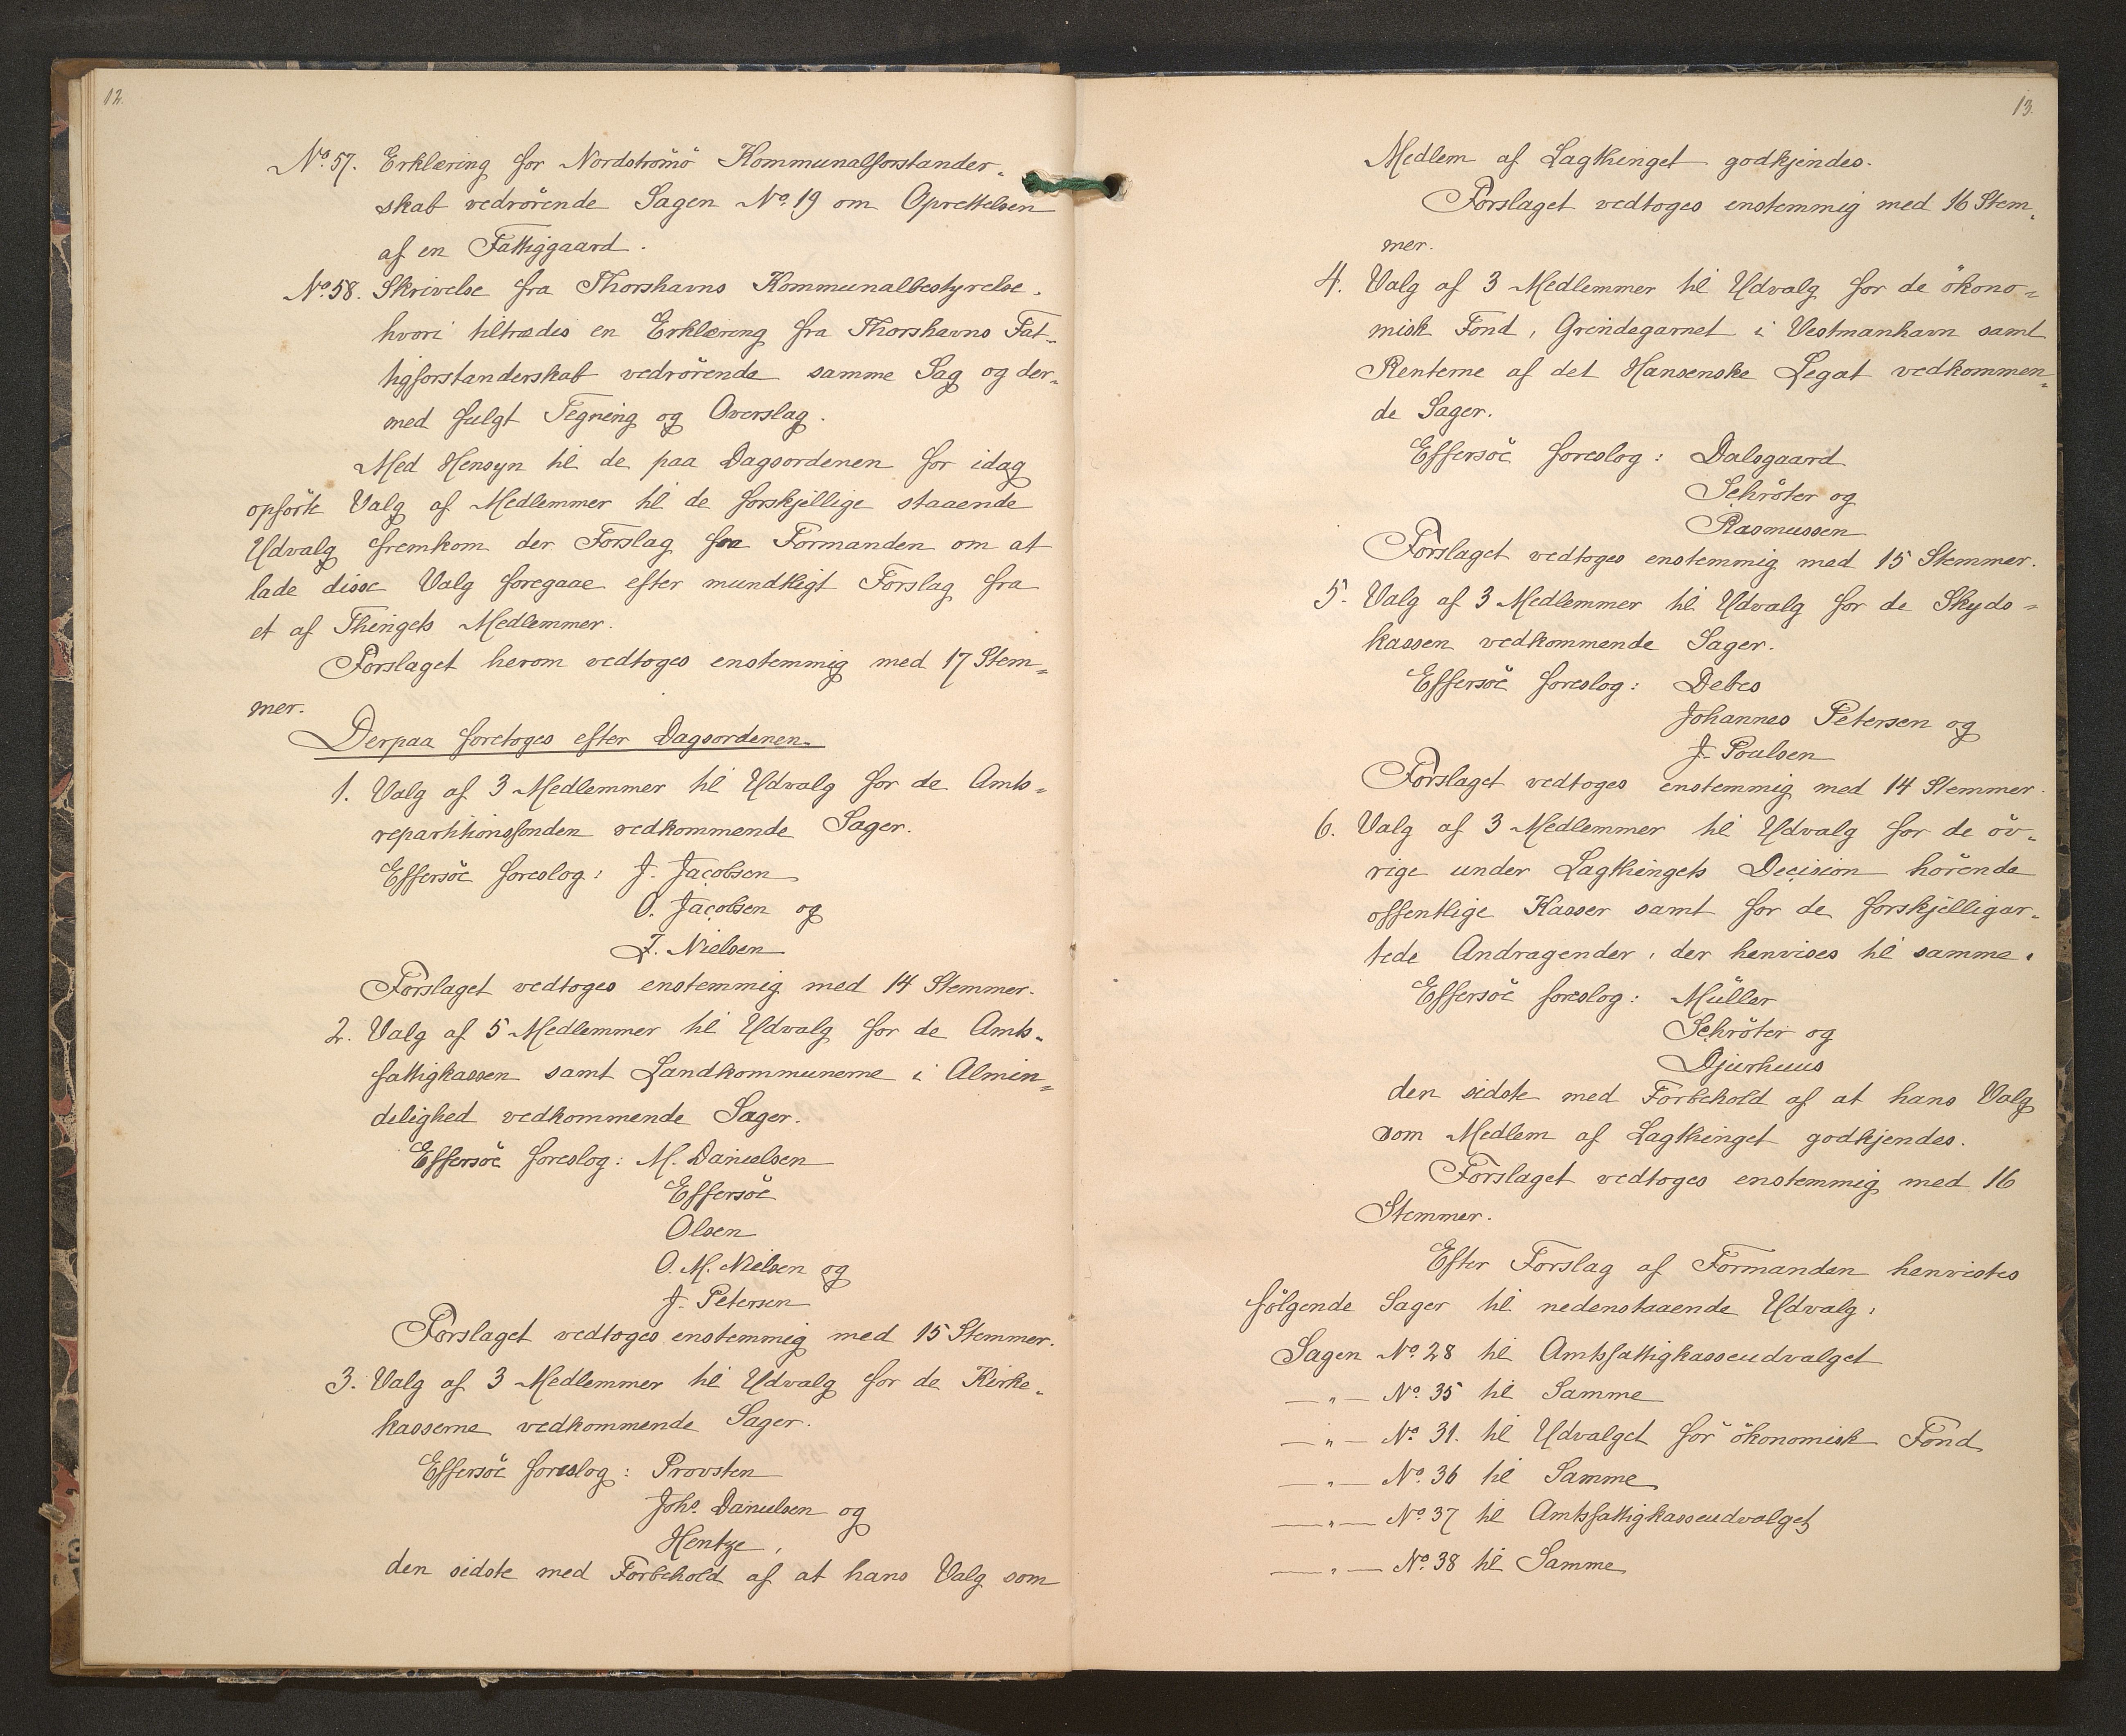 12.
No. 57. Erklæring for Nordströmö Kommunalforstander-
skab vedrörende Sagen No. 19 om Oprettelsen
af en Fattiggaard.
No. 58. Skrivelse fra Thorshavns Kommunalbestyrelse,
hvori tiltrædes en Erklæring fra Thorshavns Fat-
tigforstanderskab vedrörende samme Sag og der-
med fulgt Tegning og Overslag.
Med Hensyn til de paa Dagsordenen for idag
opförte Valg af Medlemmer til de forskjellige staaende
Udvalg fremkom der Forslag fra Formanden om at
lade disse Valg foregaae efter mundtligt Forslag fra
et af Thingets Medlemmer.
Forslaget herom vedtoges enstemmig med 17 Stem=
mer.
Derpaa foretoges efter Dagsordenen.
1. Valg af 3 Medlemmer til Udvalg for de Amts=
repartitionsfonden vedkommende Sager.
Effersöe foreslog: J. Jacobsen
O. Jacobsen og
J. Nielsen
Forslaget vedtoges enstemmig med 14 Stemmer.
2. Valg af 5 Medlemmer til Udvalg for de Amts-
fattigkassen samt Landkommunerne i Almin=
delighed vedkommende Sager.
Effersöe foreslog: M. Danielsen
Effersöe
Olsen
O. M. Nielsen og
J. Petersen
Forslaget vedtoges enstemmig med 15 Stemmer.
3. Valg af 3 Medlemmer til Udvalg for de Kirke-
kasserne vedkommende Sager.
Effersöe foreslog: Provsten
Johs. Danielsen og
Hentze,
den sidste med Forbehold af at hans Valg som
13.
Medlem af Lagthinget godkjendes.
Forslaget vedtoges enstemmig med 16 Stem-
mer.
4. Valg af 3 Medlemmer til Udvalg for de ökono=
misk Fond, Grindegarnet i Vestmanhavn samt
Renterne af det Hansenske Legat vedkommen=
de Sager.
Effersöe foreslog: Dalsgaard
Schröter og
Rasmussen
Forslaget vedtoges enstemmig med 15 Stemmer.
5. Valg af 3 Medlemmer til Udvalg for de Skyds=
kassen vedkommende Sager.
Effersöe foreslog: Debes
Johannes Petersen og
J. Poulsen
Forslaget vedtoges enstemmig med 14 Stemmer.
6. Valg af 3 Medlemmer til Udvalg for de öv-
rige under Lagthingets Decision hörende
offentlige Kasser samt for de forskjelligar-
tede Andragender, der henvises til samme.
Effersöe foreslog: Müller
Schröter og
Djurhuus
den sidste med Forbehold af at hans Valg
som Medlem af Lagthinget godkjendes.
Forslaget vedtoges enstemmig med 16
Stemmer.
Efter Forslag af Formanden henvistes
fölgende Sager til nedenstaaende Udvalg:
Sagen No. 28 til Amtsfattigkasseudvalget
—"— No. 35 til Samme
—"— No. 31. til Udvalget for ökonomisk Fond
—"— No. 36 til Samme
—"— No. 37 til Amtsfattigkasseudvalget
—"— No. 38 til Samme